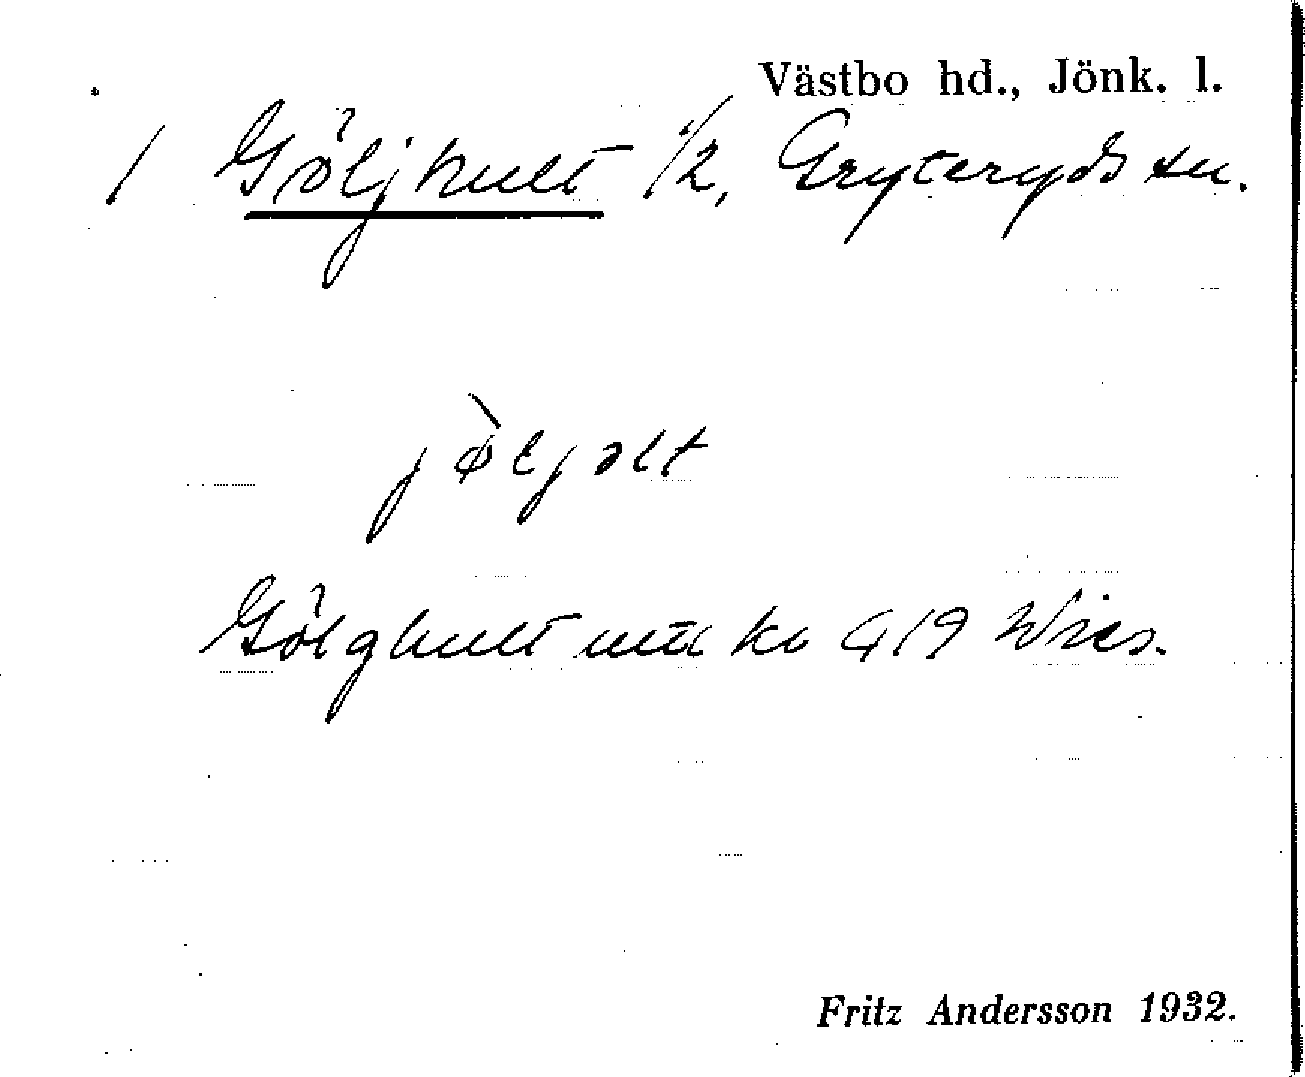 Västbo hd., Jönk. l.
/ Göljhult 1/2, Gryteryds sn.
jø̀ljɔlt
Gölghult utt ko 419 Wies.
Fritz Andersson 1932.